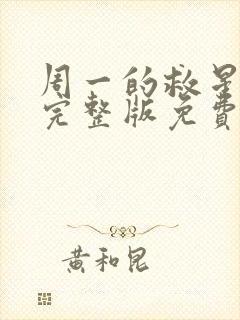 周一的救星
完整版免費
黃和昆